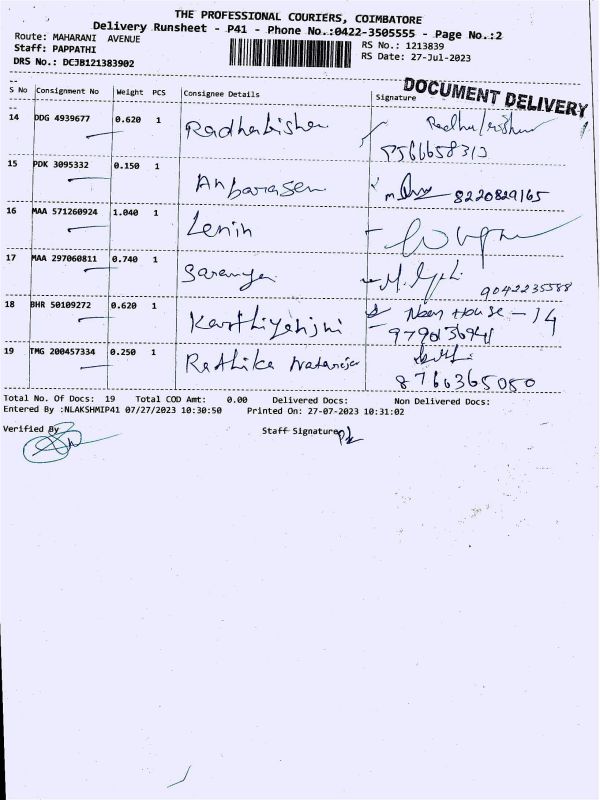 THE PROFESSIONAL COURIERS, COIMBATORE
Delivery Runsheet - P41 - Phone No.:0422-3505555 - Page No.:2
Route: MAHARANI AVENUE RS No.: 1213839
Staff: PAPPATHI RS Date: 27-Jul-2023
DRS No.: DCJB121383902
DOCUMENT DELIVERY
S No Consignment No Weight PCS Consignee Details Signature
14 DDG 4939677 0.620 1 Radhakishan
15 PDK 3095332 0.150 1 Anbarasen 8220829165
16 MAA 571260924 1.040 1 Lenin
17 MAA 297060811 0.740 1 Saranya 9042235588
18 BHR 50109272 0.620 1 Karthiyahini House - 14
19 TMG 200457334 0.250 1 Rathika Nataraja
8766365050
Total No. Of Docs: 19 Total COD Amt: 0.00 Delivered Docs: Non Delivered Docs:
Entered By :NLAKSHMIP41 07/27/2023 10:30:50 Printed On: 27-07-2023 10:31:02
Verified By Staff Signature